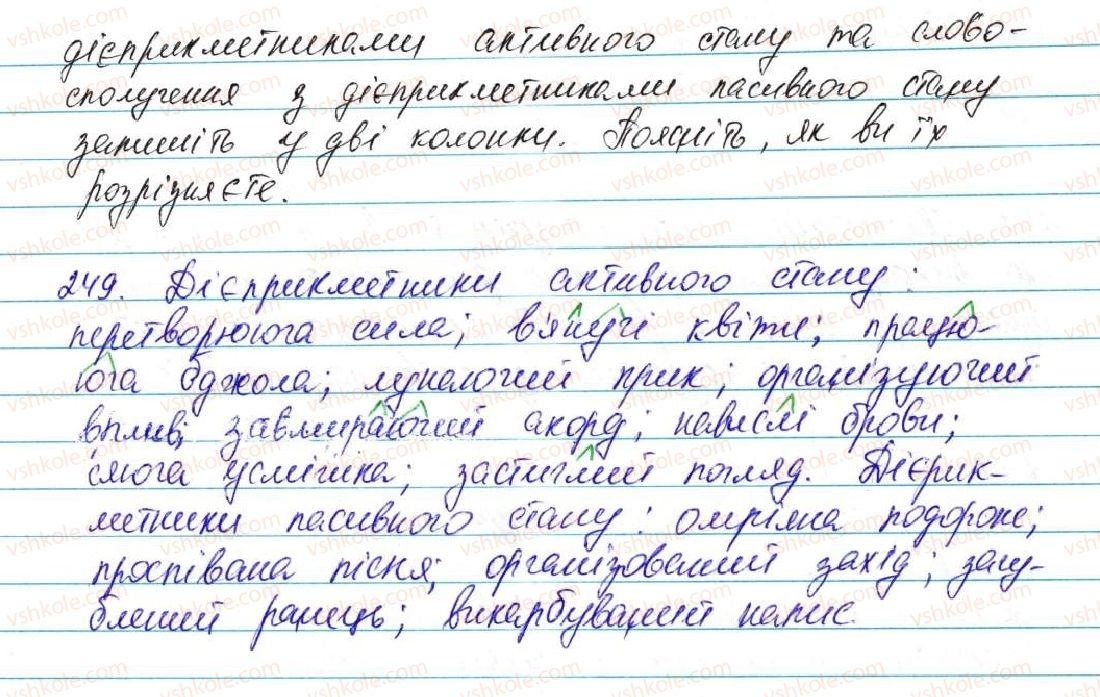 дієприкметниками активного стану та слово-
сполучення з дієприкметниками пасивного стану
запишіть у дві колонки. Поясніть, як ви їх
розрізняєте.
249. Дієприкметники активного стану:
перетворююча сила; в'янучі квіти; працю-
юча бджола; лунаючий крик; організуючий
вплив; завмираючий акорд; навислі брови;
сяюча усмішка; застиглий погляд. Дієприк-
метники пасивного стану: омріяна подорож;
проспівана пісня; організований захід; загу-
блений ранець; викарбуваний напис.